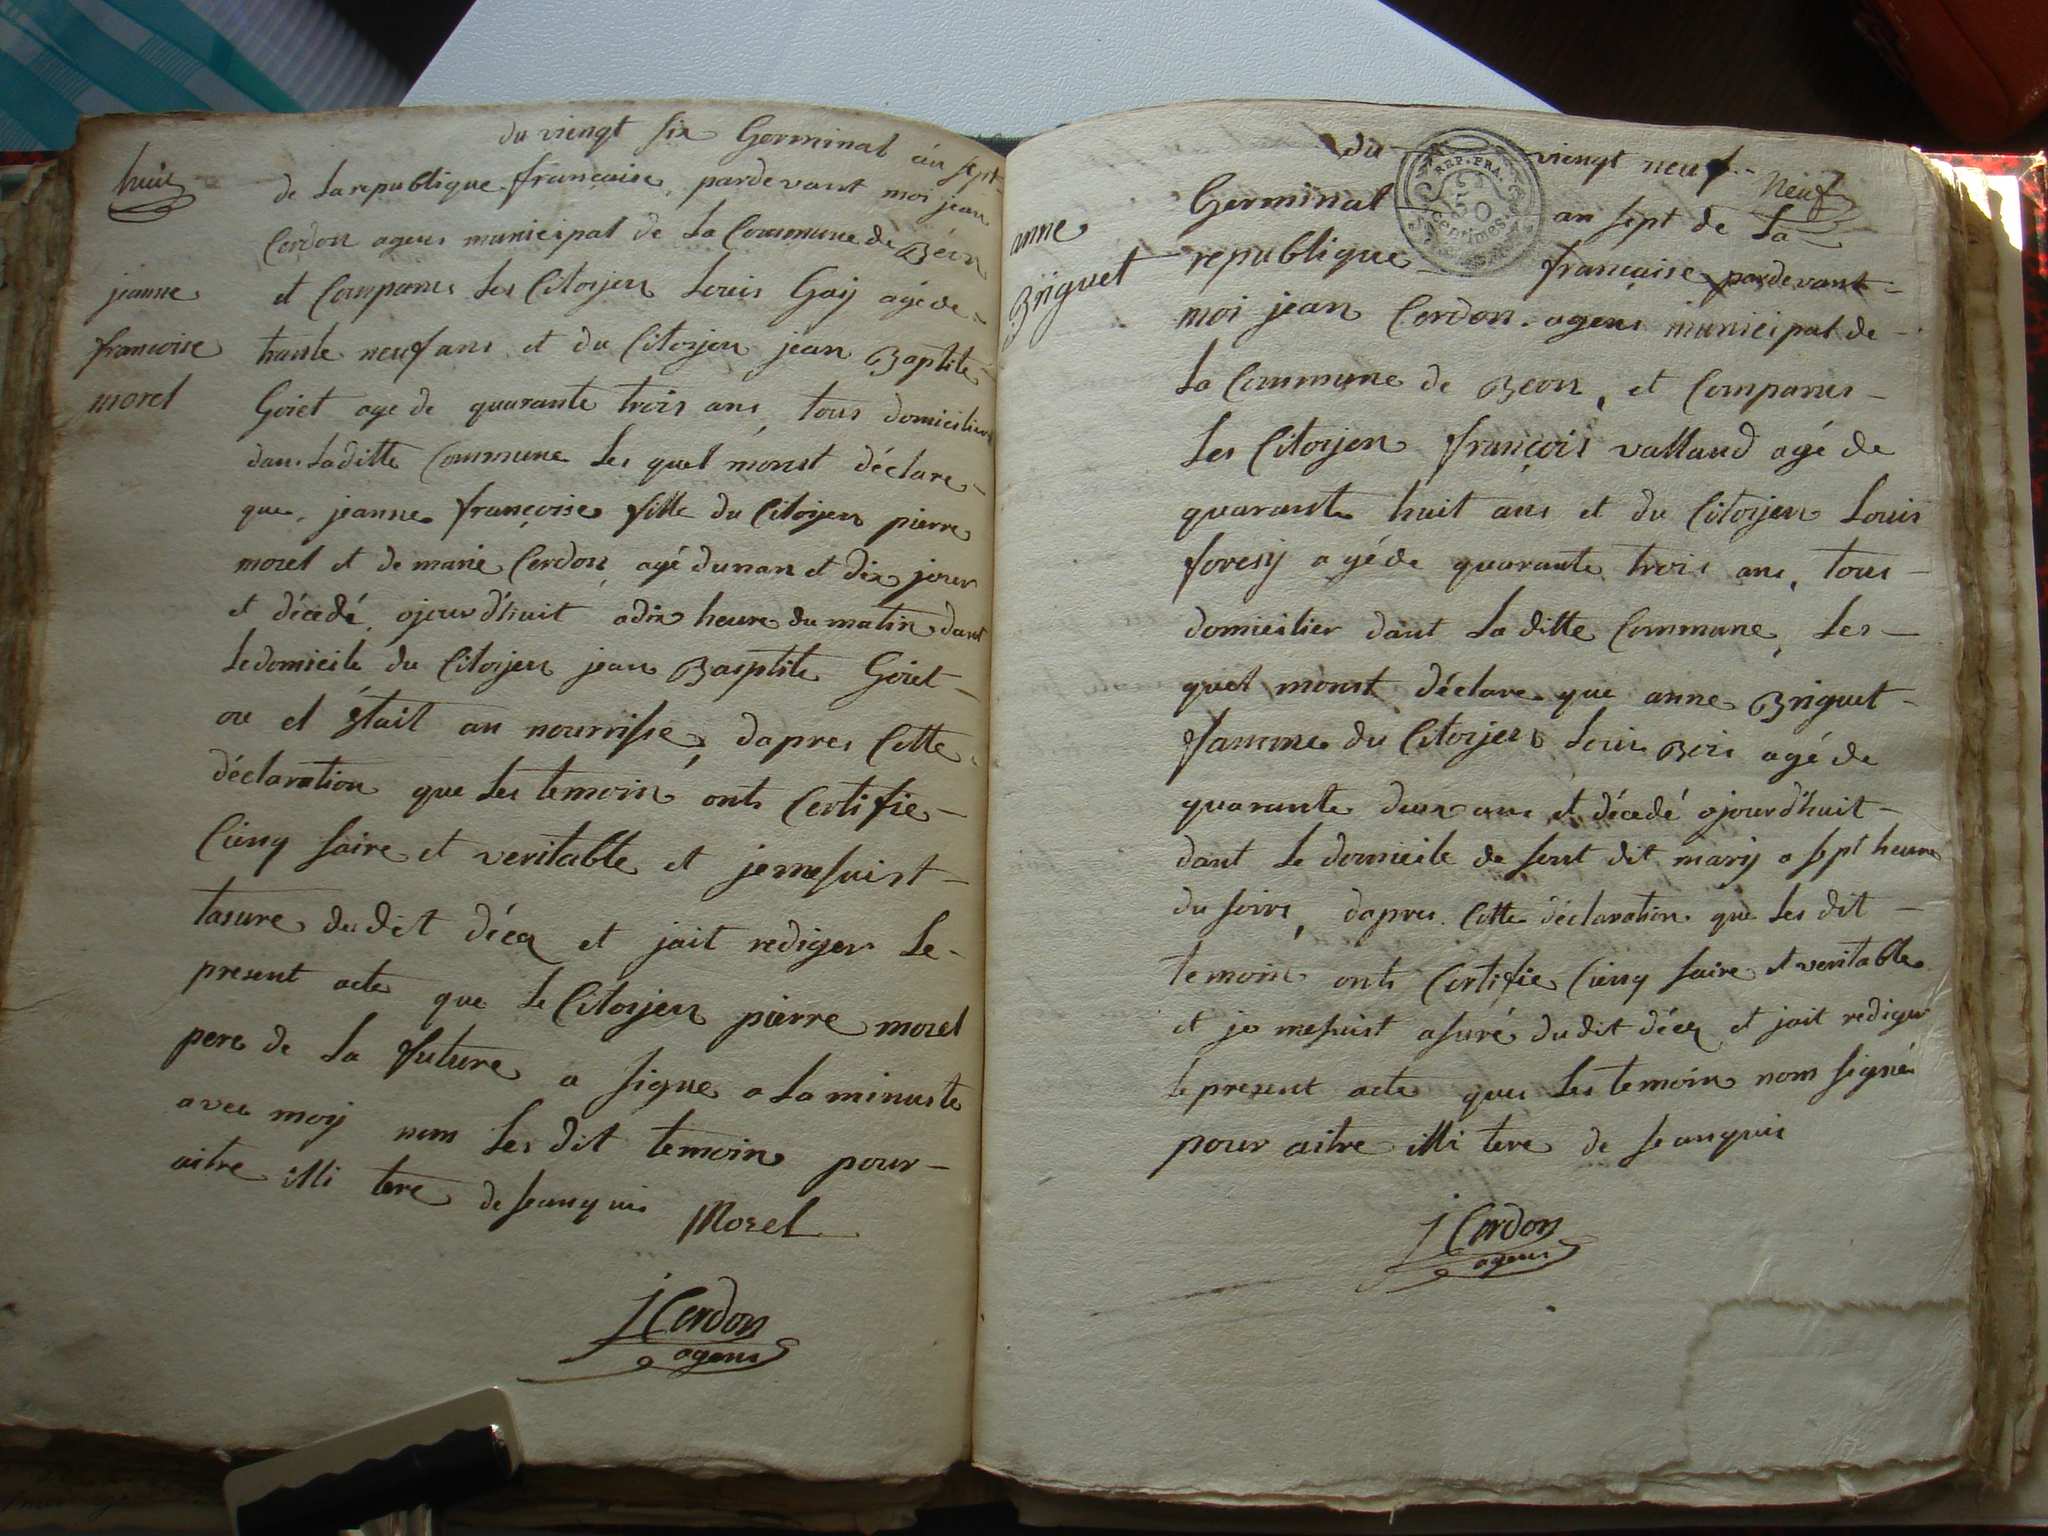 huit
jeanne
francoise
morel
du viengt six Germinal an sept
de la republique francaise, pardevant moi jean
Cerdon agens municipal de la Commune de Béon
et Comparus les Citoijen Louis Gaij agé de
trante neuf ans et du Citoijen jean Baptite
Goiet age de quarante trois ans, tous domicilier
dans laditte Commune les quel monst déclare
que, jeanne françoise fille du Citoijen pierre
morel et de marie Cerdon, agé dunan et dix jour
et décédé ojourd'huit a dix heure du matin dant
le domicile du Citoijen jean Basptite Goiet
ou el était an nourrisse, dapres Cette
déclaration que les temoin onts Certifie
Cienq saire et veritable et je me suist
tasure du dit déca et jait rediger le
present acte que le Citoijen pierre morel
pere de la future a signe a la minuste
avec moij nom les dit temoin pour
aitre illi tere de seanquis Morel
J Cerdon
agens
Neuf
anne
Briguet
du viengt neuf
Germinal an sept de la
republique francaise pardevant
REP. FRA.
50
centimes
moi jean Cerdon agens municipal de
la Commune de Beon, et Comparus
les Citoijen françois valland agé de
quarante huit ans et du Citoijen Louis
foresij agé de quarante trois ans, tous
domicilier dant la ditte Commune, les
quel monst déclare que anne Briguet
famme du Citoijen Louis Bois agé de
quarante deux ans et décedé ojourd'huit
dant le domicile de sont dit marij a sept heure
du soire, dapres Cette déclaration que les dit
temoin onts Certifie Cienq saire et veritable
et je mesuist asuré du dit déca et jait rediger
le present acte que les temoin nom signé
pour aitre illi tere de seanquis
J Cerdon
agens